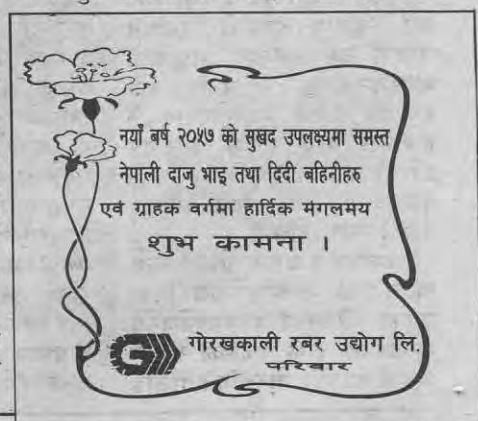 नयाँ बर्ष २०५७ को सुखद उपलक्ष्यमा समस्त
नेपाली दाजु भाइ तथा दिदी बहिनीहरु
एवं ग्राहक वर्गमा हार्दिक मंगलमय
शुभ कामना ।
गोरखकाली रबर उद्योग लि.
परिवार